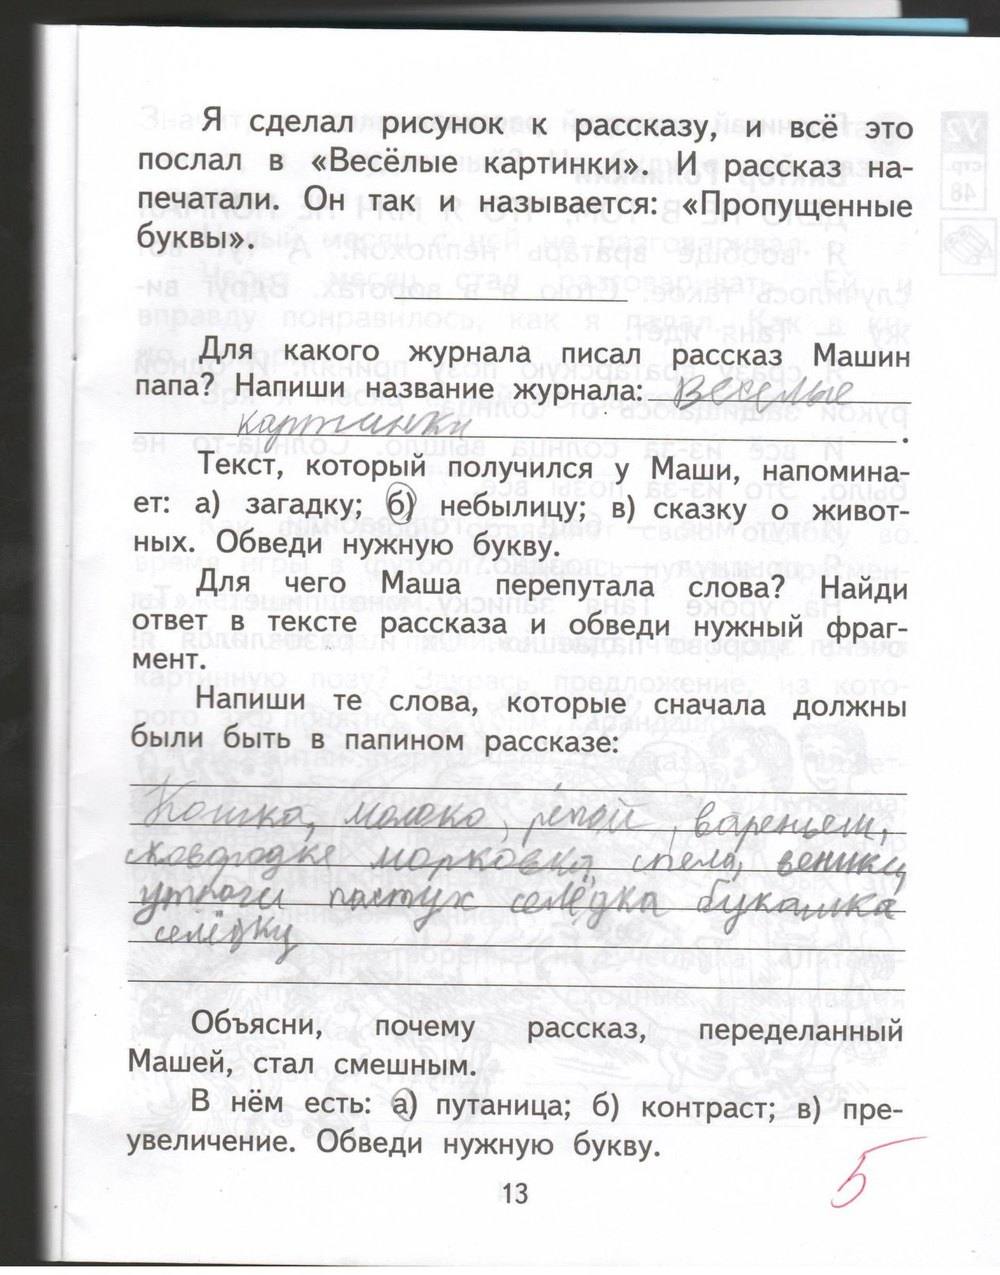 Я сделал рисунок к рассказу, и всё это
послал в «Весёлые картинки». И рассказ на-
печатали. Он так и называется: «Пропущенные
буквы».
Для какого журнала писал рассказ Машин
папа? Напиши название журнала: Веселые
картинки.
Текст, который получился у Маши, напомина-
ет: а) загадку; б) небылицу; в) сказку о живот-
ных. Обведи нужную букву.
Для чего Маша перепутала слова? Найди
ответ в тексте рассказа и обведи нужный фраг-
мент.
Напиши те слова, которые сначала должны
были быть в папином рассказе:
Кошка, молоко, репой, вареньем,
сковородке морковка, спела, веники,
утюги пастух селёдка букашка
селёдку
Объясни, почему рассказ, переделанный
Машей, стал смешным.
В нём есть: а) путаница; б) контраст; в) пре-
увеличение. Обведи нужную букву.
5
13
стр.
48